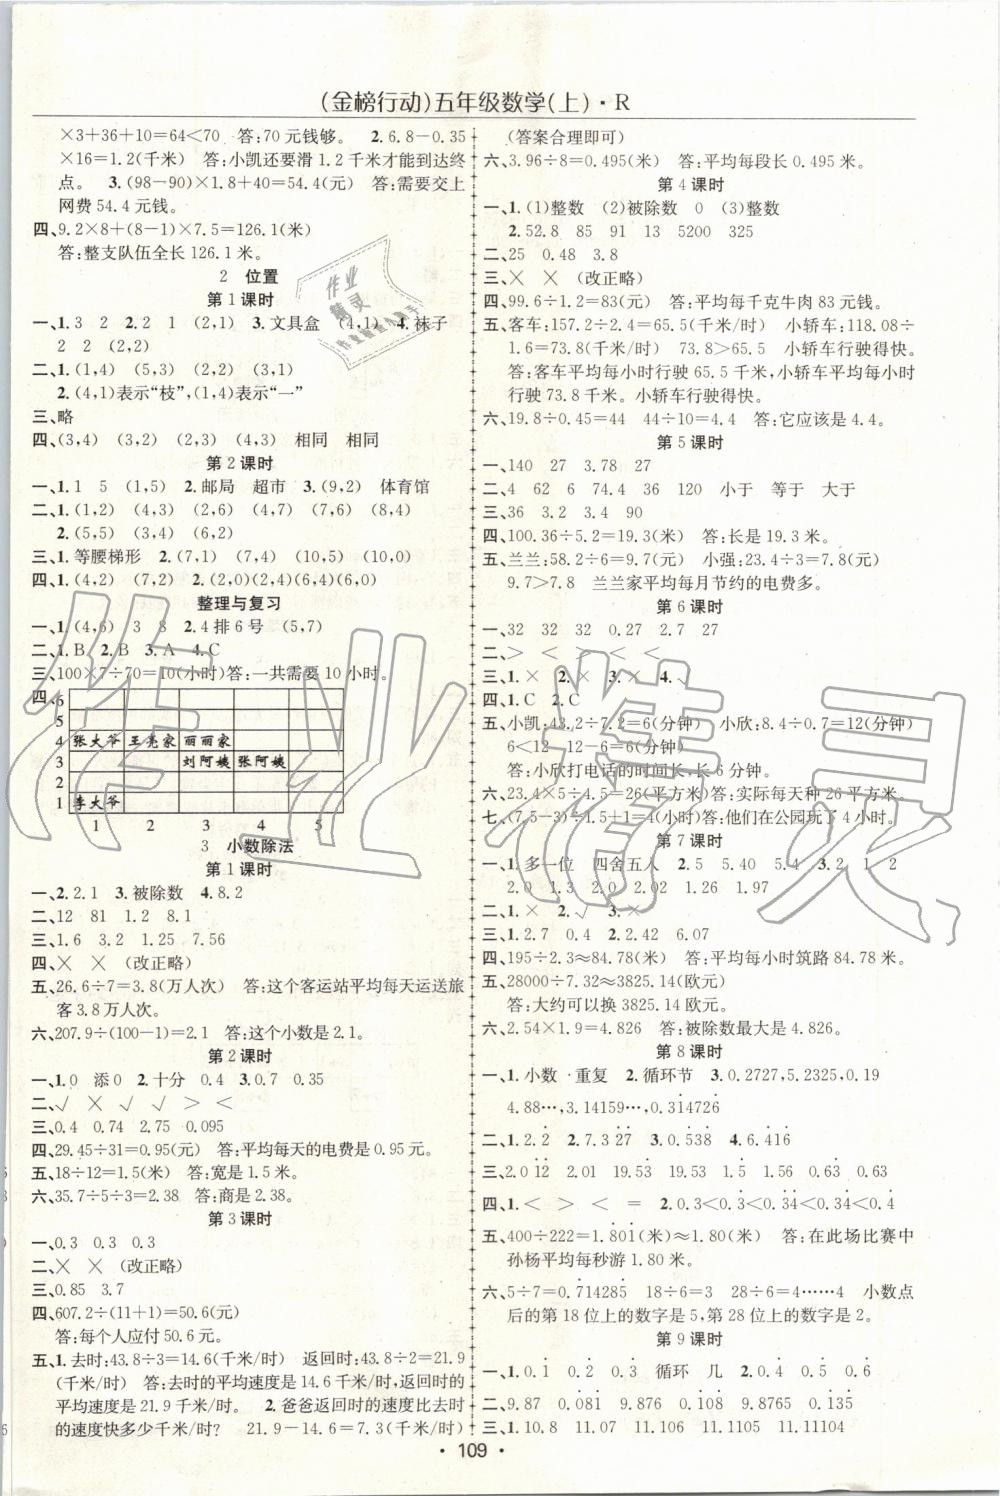 (金榜行动)五年级数学(上)·R
×3+36+10=64<70 答:70元钱够。 2.6.8-0.35
×16=1.2(千米) 答:小凯还要滑1.2千米才能到达终
点。 3.(98-90)×1.8+40=54.4(元) 答:需要交上
网费54.4元钱。
四、9.2×8+(8-1)×7.5=126.1(米)
答:整支队伍全长126.1米。
2 位置
第1课时
一、1.3 2 2.2 1 (2,1) 3.文具盒 (4,1) 4.袜子
2 2 (2,2)
二、1.(1,4) (5,3) (2,2) (3,1)
2.(4,1)表示“枝”,(1,4)表示“一”
三、略
四、(3,4) (1,3) (2,3) (4,3) 相同 相同
第2课时
一、1.1 5 (1,5) 2.邮局 超市 3.(9,2) 体育馆
二、1.(1,2) (4,3) (2,6) (4,7) (7,6) (8,4)
2.(5,5) (3,4) (6,2)
三、1.等腰梯形 2.(7,1) (7,4) (10,5) (10,0)
四、1.(4,2) (7,2) 2.(2,0)(2,4)(6,4)(6,0)
整理与复习
一、1.(4,6) 3 8 2.4排6号 (5,7)
二、1.B 2.B 3.A 4.C
三、100×7÷70=10(小时)答:一共需要10小时。
四、6
5
4 张大爷 王亮家 丽丽家
3 刘阿姨 张阿姨
2
1 李大爷
1 2 3 4 5
3 小数除法
第1课时
一、2.2.1 3.被除数 4.8.2
二、12 81 1.2 8.1
三、1.6 3.2 1.25 7.56
四、× × (改正略)
五、26.6÷7=3.8(万人次) 答:这个客运站平均每天运送旅
客3.8万人次。
六、207.9÷(100-1)=2.1 答:这个小数是2.1。
第2课时
一、1.0 添0 2.十分 0.4 3.0.7 0.35
二、√ × √ √ > <
三、0.4 0.74 2.75 0.095
四、29.45÷31=0.95(元) 答:平均每天的电费是0.95元。
五、18÷12=1.5(米) 答:宽是1.5米。
六、35.7÷5÷3=2.38 答:商是2.38。
第3课时
一、0.3 0.3 0.3
二、× × (改正略)
三、0.85 3.7
四、607.2÷(11+1)=50.6(元)
答:每个人应付50.6元。
五、1.去时:43.8÷3=14.6(千米/时) 返回时:43.8÷2=21.9
(千米/时) 答:去时的平均速度是14.6千米/时,返回时
的平均速度是21.9千米/时。 2.爸爸返回时的速度比去时
的速度快多少千米/时? 21.9-14.6=7.3(千米/时)
(答案合理即可)
六、3.96÷8=0.495(米) 答:平均每段长0.495米。
第4课时
一、1.(1)整数 (2)被除数 0 (3)整数
2.52.8 85 91 13 5200 325
二、25 0.48 3.8
三、× × (改正略)
四、99.6÷1.2=83(元) 答:平均每千克牛肉83元钱。
五、客车:157.2÷2.4=65.5(千米/时) 小轿车:118.08÷
1.6=73.8(千米/时) 73.8>65.5 小轿车行驶得快。
答:客车平均每小时行驶65.5千米,小轿车平均每小时
行驶73.8千米。小轿车行驶得快。
六、19.8÷0.45=44 44÷10=4.4 答:它应该是4.4。
第5课时
一、140 27 3.78 27
二、4 62 6 74.4 36 120 小于 等于 大于
三、36 3.2 3.4 90
四、100.36÷5.2=19.3(米) 答:长是19.3米。
五、兰兰:58.2÷6=9.7(元) 小强:23.4÷3=7.8(元)
9.7>7.8 兰兰家平均每月节约的电费多。
第6课时
一、32 32 32 0.27 2.7 27
二、> < < > < <
三、1.× 2.× 3.× 4.√
四、1.C 2.C
五、小凯:43.2÷7.2=6(分钟) 小欣:8.4÷0.7=12(分钟)
6<12 12-6=6(分钟)
答:小欣打电话的时间长,长6分钟。
六、23.4÷2×4.5÷=26(平方米)答:实际每天种26平方米。
七、(7.5-3)÷1.5+1=4(小时)答:他们在公园玩了4小时。
第7课时
一、1.多一位 四舍五入 2.5 5.40 5.4 3.2 1 2
2.0 1.3 2.0 2.02 1.26 1.97
二、1.× 2.√ 3.×
三、1.2.7 0.4 2.2.42 6.07
四、195÷2.3≈84.78(米) 答:平均每小时筑路84.78米。
五、28000÷7.32≈3825.14(欧元)
答:大约可以换3825.14欧元。
六、2.54×1.9=4.826 答:被除数最大是4.826。
第8课时
一、1.小数·重复 2.循环节 3.0.2727,5.2325,0.19
4.88…,3.14159…,0.3̇14726̇
二、1.2.2̇ 2.7.32̇7̇ 3.0.5̇38̇ 4.6.4̇16̇
三、2.01̇2̇ 2.01 19.5̇3̇ 19.53 0.6̇3̇ 0.63
四、1.< > < = 2.0.3<0.3̇<0.3̇4̇<0.34̇<0.4̇
五、400÷222=1.8̇01̇(米)≈1.80(米) 答:在此场比赛中
孙杨平均每秒游1.80米。
六、5÷7=0.7̇14285̇ 18÷6=3 28÷6=4……4 小数点
后的第18位上的数字是5,第28位上的数字是2。
第9课时
一、1.0.1̇ 0.2̇ 0.3̇ 循环 几 2.0.4̇ 0.5̇ 0.6̇
二、9.87 0.081 9.876 0.0081 9.8767 0.00081
三、1.10.8 11.07 11.106 11.1006 11.11104
·109·